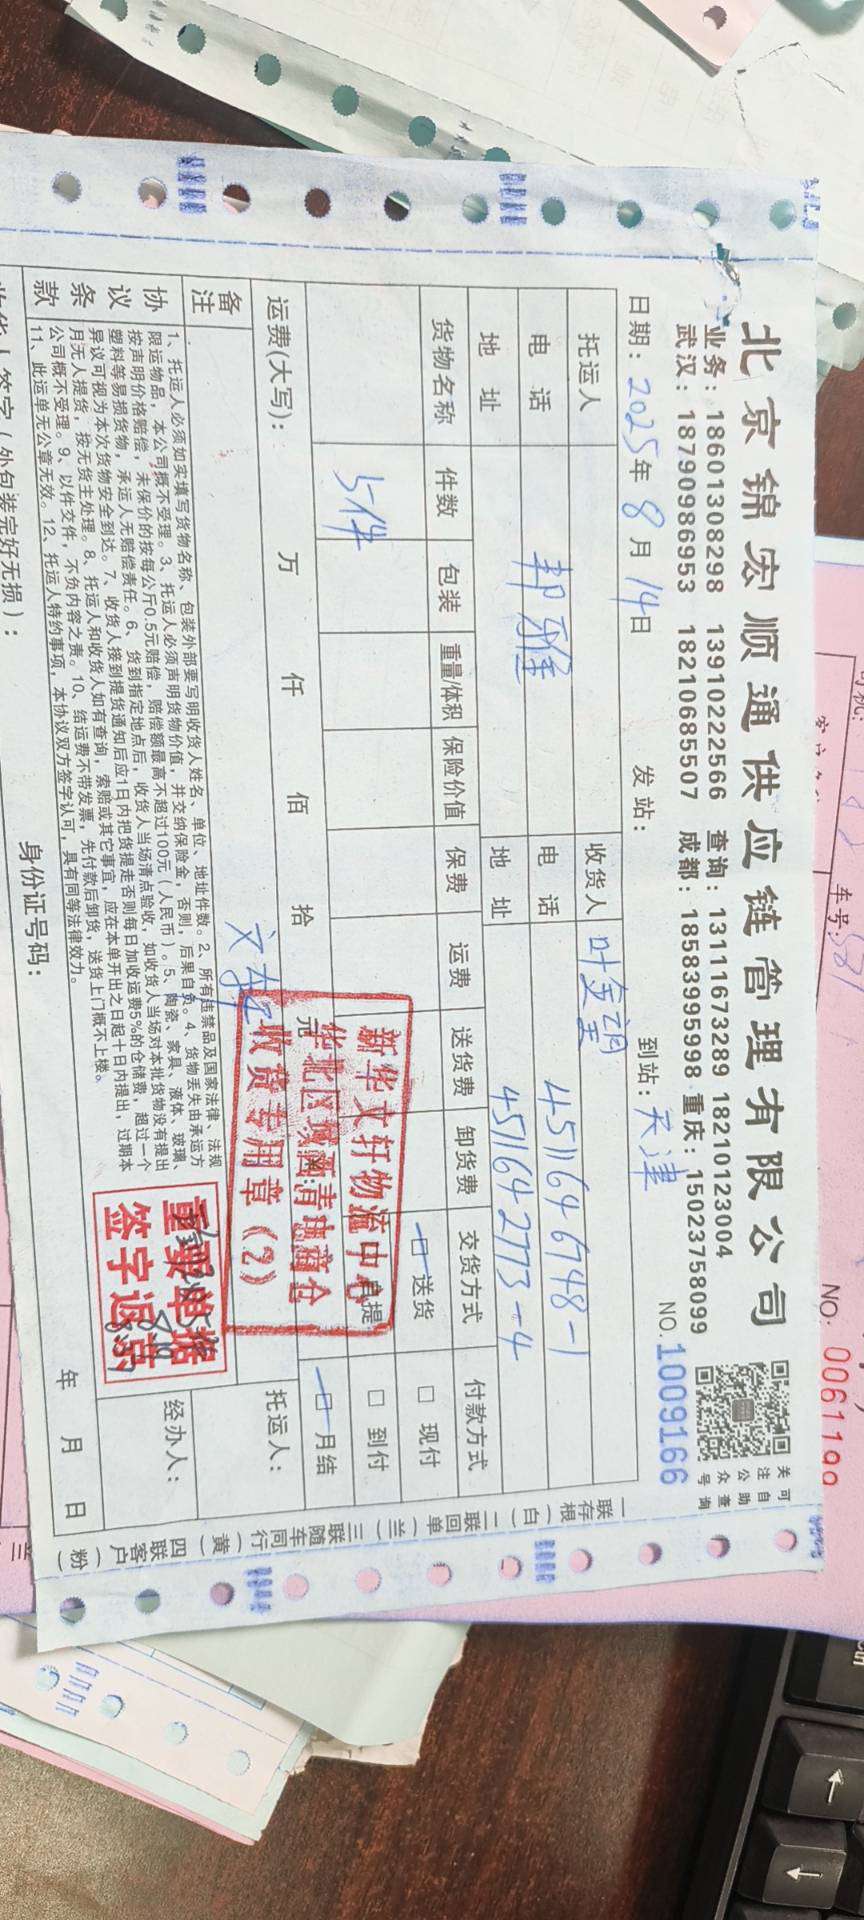 北京锦宏顺通供应链管理有限公司
业务：18601308298 13910222566 查询：13111673289 18210123004
武汉：18790986953 18210685507 成都：18583995998 重庆：15023758099
关注公众号
可自助查询
日期：2025年8月14日 发站： 到站：天津 NO.1009166
托运人 收货人 叶金望
电话 邦雅 电话 4511646748-1
地址 地址 451164 2773-4
货物名称 件数 包装 重量/体积 保险价值 保费 运费 送货费 卸货费 交货方式 付款方式
5件 送货 □现付
自提 □到付
运费(大写)： 万 仟 佰 拾 元 月结
新华文轩物流中心
收货专用章（2）
备注 文轩 托运人：
协议条款
1、托运人必须如实填写货物名称、包装外部要写明收货人姓名、单位、地址件数。2、所有违禁品及国家法律、法规
限运物品，本公司概不受理。3、托运人必须声明货物价值，并交纳保险金，否则，后果自负。4、货物丢失由承运方
按声明价格赔偿，未保价的按每公斤0.5元赔偿，赔偿额最高不超过100元（人民币）。5、陶瓷、家具、液体、玻璃、
塑料等易损货物，承运人无赔偿责任。6、货到指定地点后，收货人当场清点验收，如收货人当场对本批货物没有提出
异议可视为本次货物安全到达。7、收货人接到提货通知后应1日内把货提走否则每日加收运费5%的仓储费，超过一个
月无人提货，按无货主处理。8、托运人和收货人如有查询，索赔或其它事宜，应在本单开出之日起十日内提出，过期本
公司概不受理。9、以件交件，不负内容之责。10、结运费不带发票，先付款后卸货，送货上门概不上楼。
11、此运单无公章无效。12、托运人特约事项，本协议双方签字认可，具有同等法律效力。
重要单据
签字返京
经办人：
收货人签字（外包装完好无损）： 身份证号码： 年 月 日
一联存根（白）二联回单（兰）三联随车同行（黄）四联客户（粉）
司机：
车号：
NO: 0061199